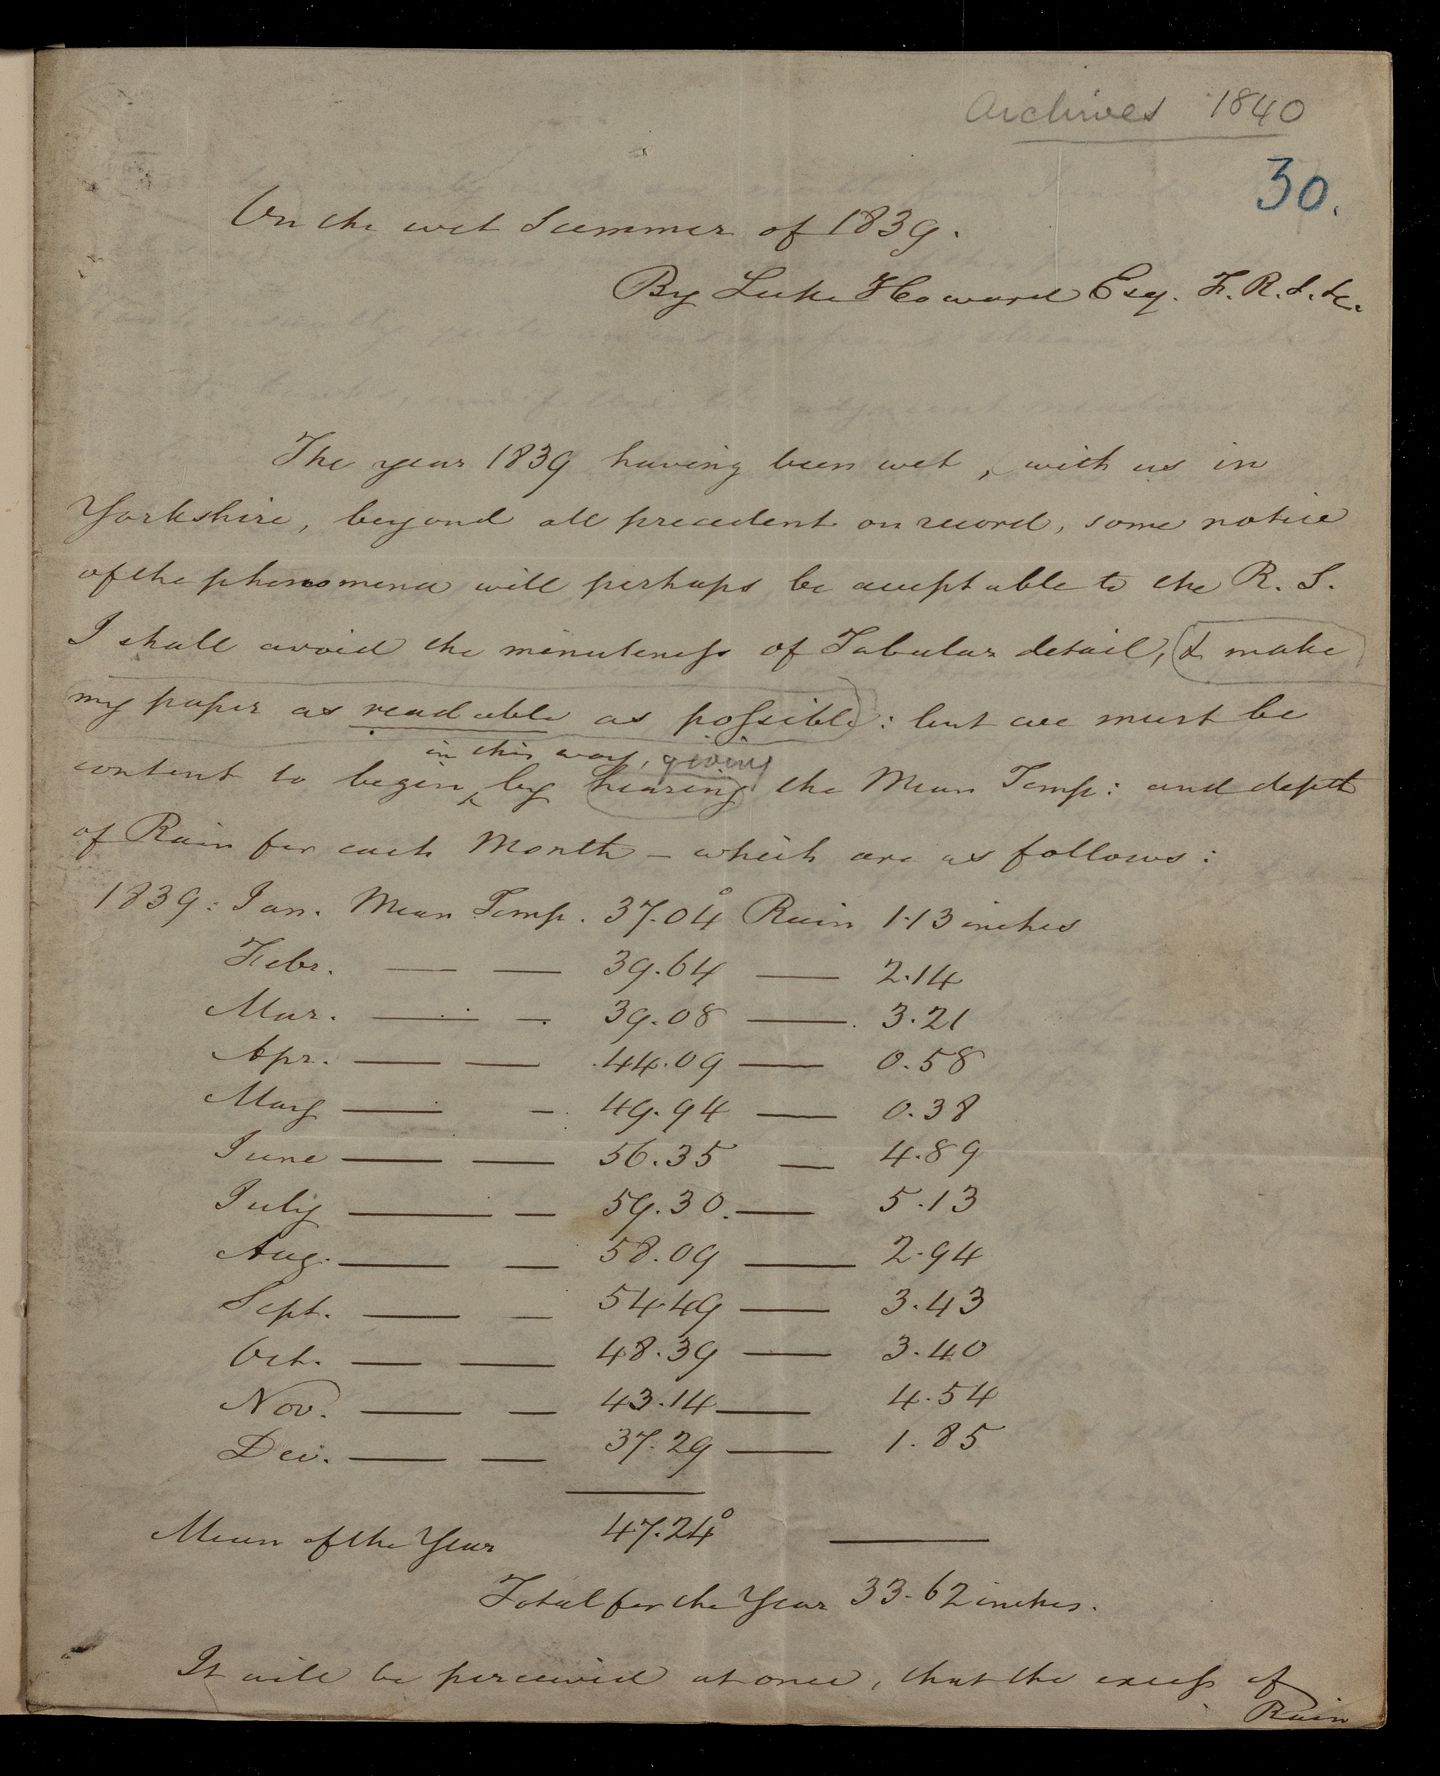 Archives 1840
30.
On the wet Summer of 1839.
By Luke Howard Esq. F. R. S. &c.
The year 1839 having been wet, with us in
Yorkshire, beyond all precedent on record, some notice
of the phenomena will perhaps be acceptable to the R. S.
I shall avoid the minuteness of Tabular detail, & make
my paper as readable as possible: but we must be
in this way, giving
content to begin by hearing the Mean Temp: and depth
of Rain for each Month – which are as follows:
1839: Jan. Mean Temp. 37.04° Rain 1.13 inches
Febr. — — 39.64 — 2.14
Mar. — — 39.08 — 3.21
Apr. — — 44.09 — 0.58
May — — 49.94 — 0.38
June — — 56.35 — 4.89
July — — 59.30 — 5.13
Aug. — — 58.09 — 2.94
Sept. — — 54.49 — 3.43
Oct. — — 48.39 — 3.40
Nov. — — 43.14 — 4.54
Dec. — — 37.29 — 1.85
Mean of the Year 47.24°
Total for the Year 33.62 inches.
It will be perceived at once, that the excess of
Rain